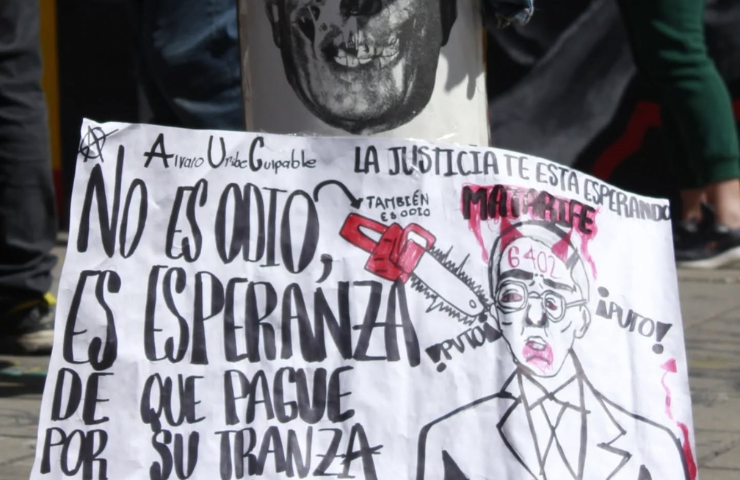 Alvaro Uribe Culpable
LA JUSTICIA TE ESTA ESPERANDO
NO ES ODIO,
TAMBIÉN
ES ODIO
ES ESPERANZA
DE QUE PAGUE
POR SU TRANZA
MATARIFE
6402
¡PUTO!
¡PUTO!